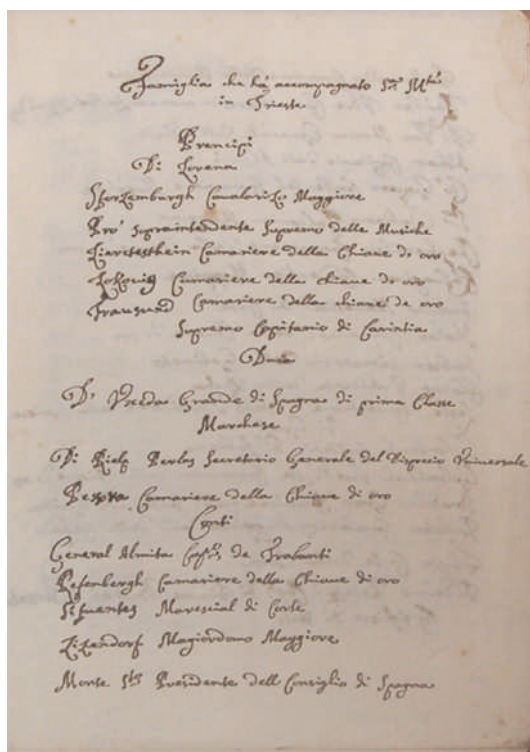 Famiglia che hà accompagnato S.a M.tà
in Trieste
Prencipi
Di Lorena
Caualarizo Maggiore
Pio Sopraintendente Supremo delle Musiche
Camariere della Chiaue di oro
Camariere della chiaue di oro
Camariere della chiaue de oro
Supremo Capitanio di Carintia
D' Vceda Grande di Spagna di prima Classe
Marchese
Di Rialp Perlas Secretario Generale del Dispacio Vniuersale
Camariere della Chiaue di oro
Conti
General Cap.o de Trabanti
Camariere della Chiaue di oro
Sifuentes Marescial di Corte
Magiordomo Maggiore
Monte S.to Presidente dell Consiglio di Spagna